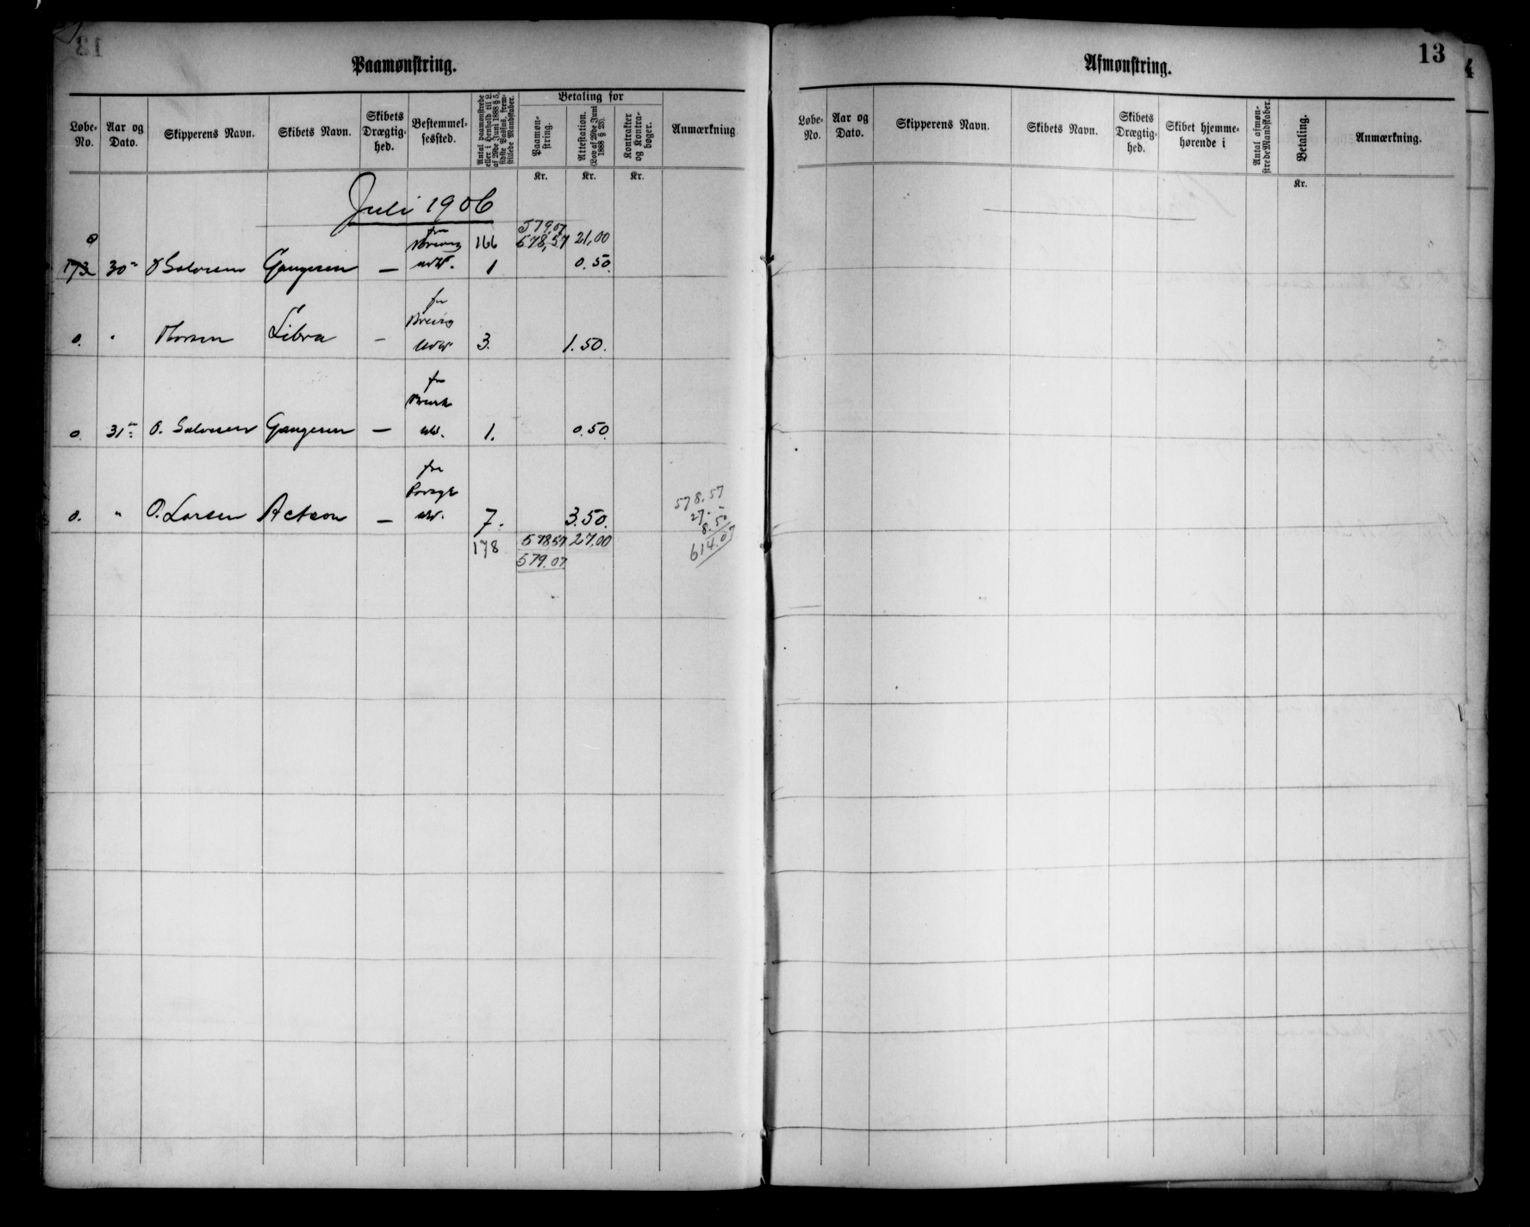 Paamønstring.
Løbe-No.
Aar og Dato.
Skipperens Navn.
Skibets Navn.
Skibets Drægtighed.
Bestemmelsessted.
Antal paamønstrede eller i Henhold til L. af 20de Juni 1888 § 5, sidste Passus, fremstillede Mandskaber.
Betaling for
Paamønstring.
Attestation. (Lov af 20de Juni 1888 § 28).
Kontrakter og Kontrabøger.
Anmærkning
Kr. Kr. Kr.
Juli 1906
579,07
166 578,57 21,00
173 30 Salvesen Gangeren — 1 0.50
fra
0. Thorsen Libra — 3. 1.50.
fra
0. 31 O. Salvesen Gangeren — 1. 0.50
fra
0. " O. Larsen Acteon — 7. 3.50.
178 578.57 27.00
579.07
578.57
27.-
8.50
614.07
Afmønstring.
13
Løbe-No.
Aar og Dato.
Skipperens Navn.
Skibets Navn.
Skibets Drægtighed.
Skibet hjemmehørende i
Antal afmønstrede Mandskaber.
Betaling.
Anmærkning.
Kr.